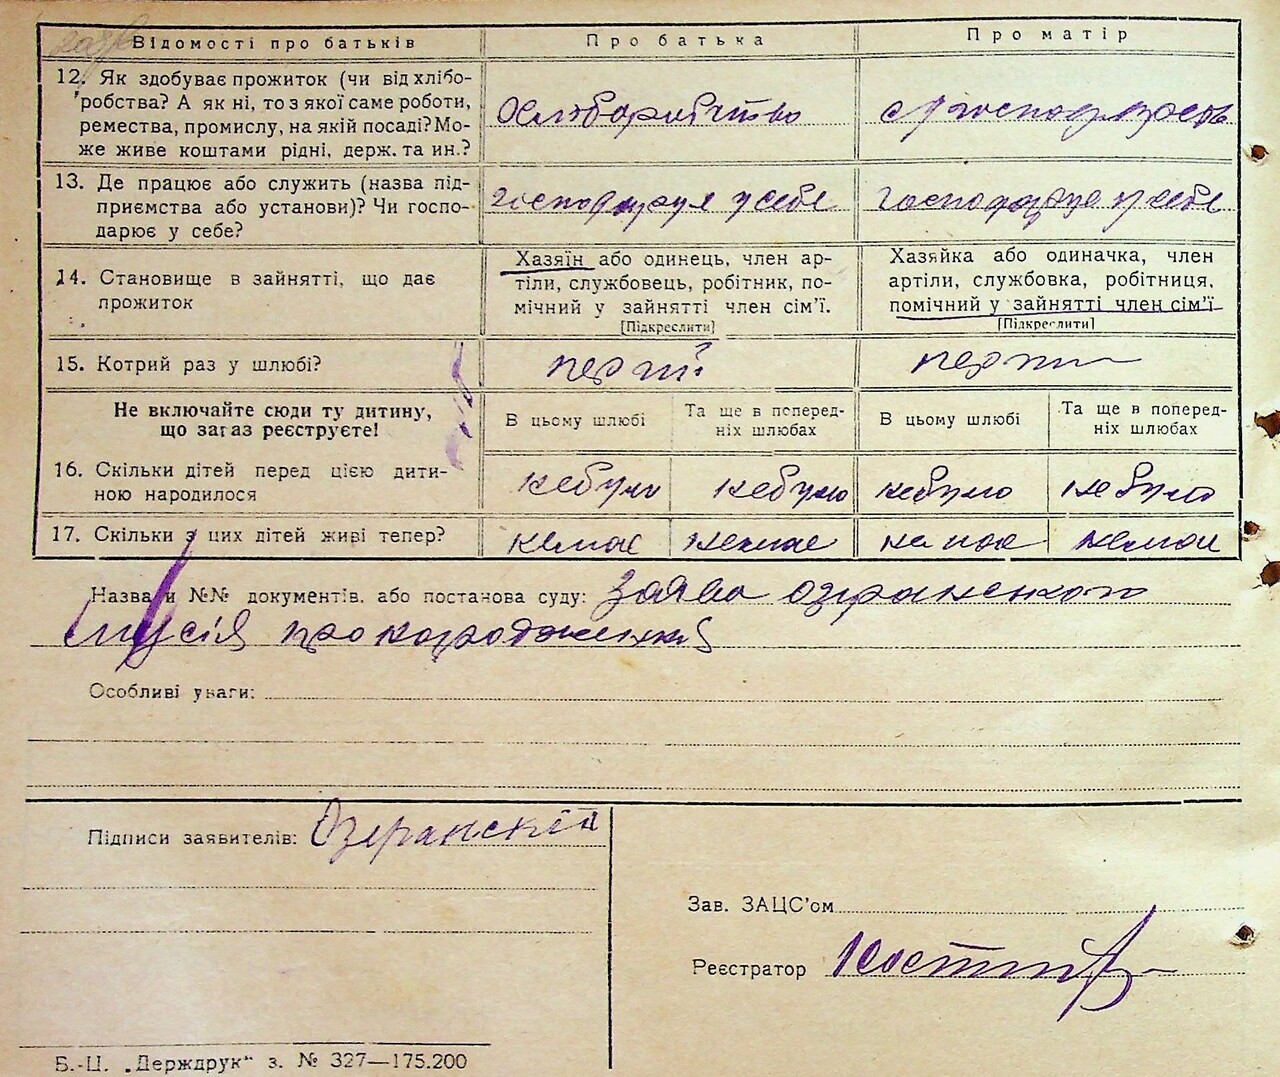 Відомості про батьків
Про батька
Про матір
12. Як здобуває прожиток (чи від хлібо-
робства? А як ні, то з якої саме роботи,
ремества, промислу, на якій посаді? Мо-
же живе коштами рідні, держ. та ин.?
хліборобство
13. Де працює або служить (назва під-
приємства або установи)? Чи госпо-
дарює у себе?
господарює у себе
господарює у себе
14. Становище в зайнятті, що дає
прожиток
Хазяїн або одинець, член ар-
тіли, службовець, робітник, по-
мічний у зайнятті член сім'ї.
[Підкреслити]
Хазяйка або одиначка, член
артіли, службовка, робітниця,
помічний у зайнятті член сім'ї
[Підкреслити]
15. Котрий раз у шлюбі?
перший
перший
Не включайте сюди ту дитину,
що зараз реєструєте!
В цьому шлюбі
Та ще в поперед-
ніх шлюбах
В цьому шлюбі
Та ще в поперед-
ніх шлюбах
16. Скільки дітей перед цією дити-
ною народилося
небуло
небуло
небуло
небуло
17. Скільки з цих дітей живі тепер?
немає
немає
немає
немає
Назвати №№ документів, або постанова суду: заява Озеранського
Мусія про народження
Особливі уваги:
Підписи заявителів: Озеранский
Зав. ЗАЦС'ом
Реєстратор
Б.-Ц. „Держдрук“ з. № 327—175.200